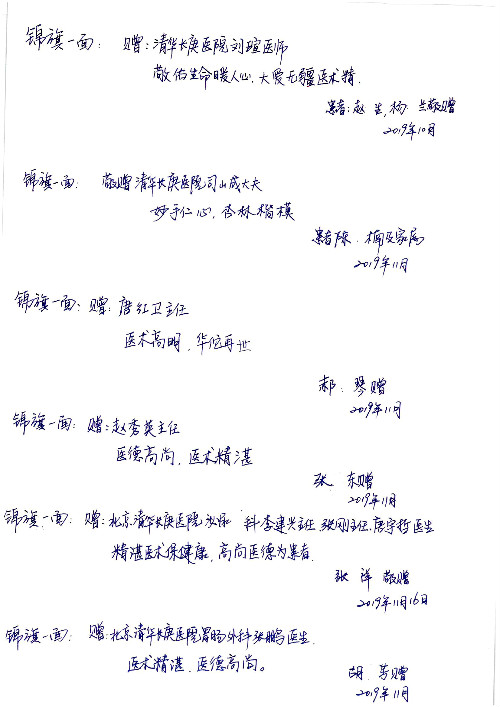 锦旗一面: 赠:清华长庚医院刘瑄医师
敬佑生命暖人心,大爱无疆医术精.
患者:赵 生,杨 兰敬赠
2019年10月
锦旗一面: 敬赠清华长庚医院司山成大夫
妙手仁心,杏林楷模
患者陈 楠及家属
2019年11月
锦旗一面: 赠:唐红卫主任
医术高明,华佗再世
郝 琴赠
2019年11月
锦旗一面: 赠:赵秀英主任
医德高尚,医术精湛
张 东赠
2019年11月
锦旗一面: 赠:北京清华长庚医院泌尿 科李建兴主任,张刚主任,唐宇哲医生
精湛医术保健康,高尚医德为患者.
张 祥 敬赠
2019年11月16日
锦旗一面: 赠:北京清华长庚医院胃肠外科张鹏医生.
医术精湛,医德高尚。
胡 芳赠
2019年11月